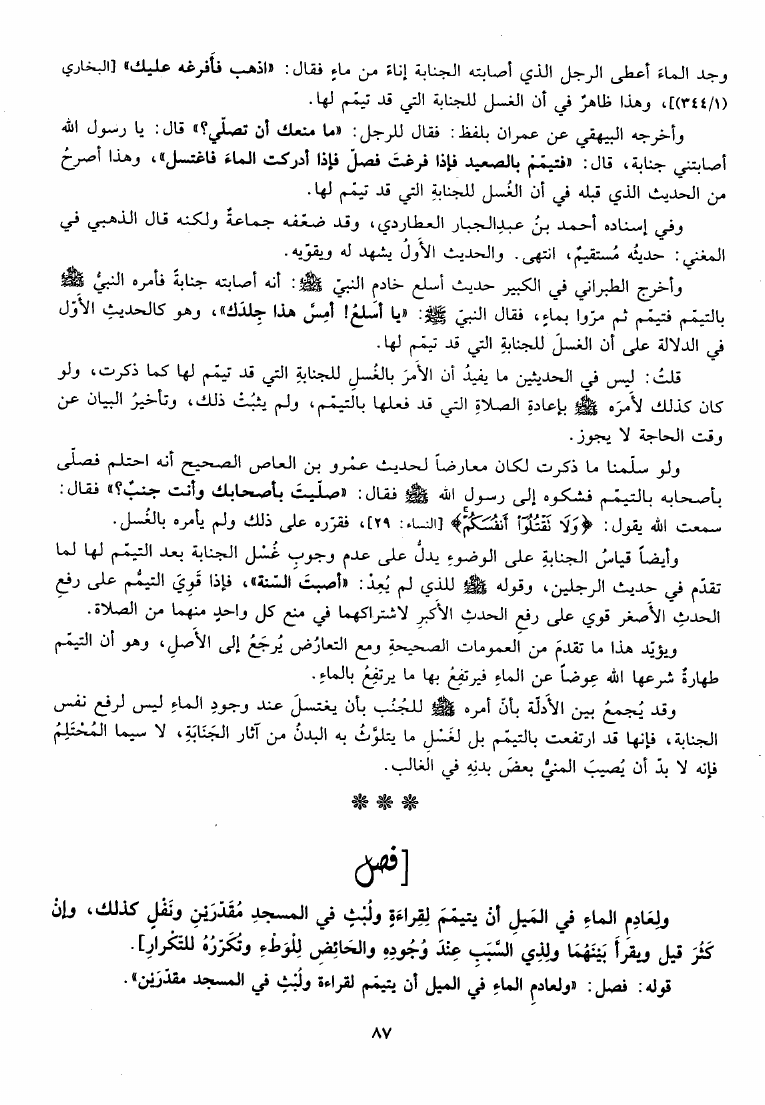 وجد الماءَ أعطى الرجل الذي أصابته الجنابة إناءً من ماءٍ فقال: «اذهب فأفرغه عليك» [البخاري
(٣٤٤/١)]، وهذا ظاهرٌ في أن الغسل للجنابة التي قد تيمّم لها.
وأخرجه البيهقي عن عمران بلفظ: فقال للرجل: «ما منعك أن تصلّي؟» قال: يا رسول الله
أصابتني جنابة، قال: «فتيمّمْ بالصعيد فإذا فرغتَ فصلّ فإذا أدركت الماءَ فاغتسل»، وهذا أصرحُ
من الحديث الذي قبله في أن الغُسل للجنابةِ التي قد تيمّم لها.
وفي إسناده أحمد بنُ عبدالجبار العطاردي، وقد ضعّفه جماعةٌ ولكنه قال الذهبي في
المغني: حديثُه مُستقيمٌ، انتهى. والحديث الأولُ يشهد له ويقوّيه.
وأخرج الطبراني في الكبير حديث أسلع خادم النبيّ ﷺ: أنه أصابته جنابةٌ فأمره النبيُّ ﷺ
بالتيمّم فتيمّم ثم مرّوا بماءٍ، فقال النبيّ ﷺ: «يا أسلعُ! أمِسَّ هذا جِلدَك»، وهو كالحديثِ الأوّل
في الدلالة على أن الغسلَ للجنابةِ التي قد تيمّم لها.
قلتُ: ليس في الحديثين ما يفيدُ أن الأمرَ بالغُسلِ للجنابةِ التي قد تيمّم لها كما ذكرت، ولو
كان كذلك لأمرَه ﷺ بإعادةِ الصلاةِ التي قد فعلها بالتيمّم، ولم يثبُتْ ذلك، وتأخيرُ البيان عن
وقت الحاجة لا يجوز.
ولو سلّمنا ما ذكرت لكان معارضاً لحديث عمْرو بن العاص الصحيح أنه احتلم فصلّى
بأصحابه بالتيمّم فشكوه إلى رسول الله ﷺ فقال: «صلّيتَ بأصحابك وأنت جنبٌ؟» فقال:
سمعت الله يقول: ﴿وَلَا نَقْتُلُوٓا۟ أَنفُسَكُمْ﴾ [النساء: ٢٩]، فقرّره على ذلك ولم يأمره بالغُسل.
وأيضاً قياسُ الجنابةِ على الوضوءِ يدلُّ على عدم وجوبِ غُسْل الجنابة بعد التيمّم لها لما
تقدّم في حديث الرجلين، وقوله ﷺ للذي لم يُعِدْ: «أصبتَ السّنة»، فإذا قَوِيَ التيمُّم على رفع
الحدثِ الأصغر قوي على رفعِ الحدثِ الأكبرِ لاشتراكهما في منع كل واحدٍ منهما من الصلاة.
ويؤيّد هذا ما تقدمَ من العمومات الصحيحةِ ومع التعارُض يُرجَعُ إلى الأصلِ، وهو أن التيمّم
طهارةٌ شرعها الله عِوضاً عن الماءِ فيرتفِعُ بها ما يرتفِعُ بالماءِ.
وقد يُجمعُ بين الأدلّة بأنّ أمره ﷺ للجُنُب بأن يغتسلَ عند وجودِ الماءِ ليس لرفع نفس
الجنابة، فإنها قد ارتفعت بالتيمّم بل لغَسْلِ ما يتلوّثُ به البدنُ من آثار الجَنَابَةِ، لا سيما المُحْتَلِمُ
فإنه لا بدّ أن يُصيبَ المنيُّ بعضَ بدنِهِ في الغالب.
[فصل
ولِعَادِمِ الماءِ في المَيلِ أنْ يتيمّمَ لِقِراءَةٍ ولُبْثٍ في المسجدِ مُقَدّرَيْنِ ونَفْلٍ كذلك، وإنْ
كَثُرَ قيل ويقرأَ بَيْنَهُمَا ولِذِي السَّبَبِ عِنْدَ وُجُودِهِ والحَائضِ لِلْوَطْءِ وتُكَرّرُهُ للتّكْرارِ].
قوله: فصل: «ولعادمِ الماءِ في الميل أن يتيمّم لقراءة ولُبْثٍ في المسجد مقدّرَيْن».
٨٧